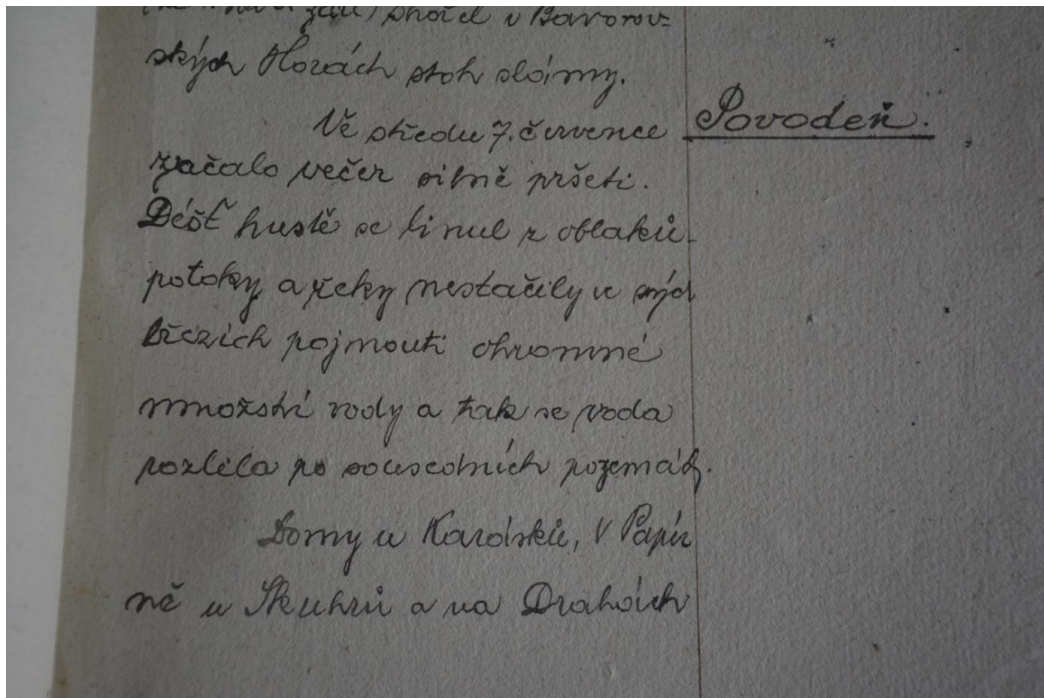 shořel v Bavorov-
ských Horách stoh slámy.
Ve středu 7. července
Povodeň.
začalo večer silně pršeti.
Déšť hustě se linul z oblaků.
potoky a řeky nestačily v svých
březích pojmouti ohromné
množství vody a tak se voda
rozlila po sousedních pozemcích.
Domy u Karásků, V Papír
ně u Skuhrů a na Drahách